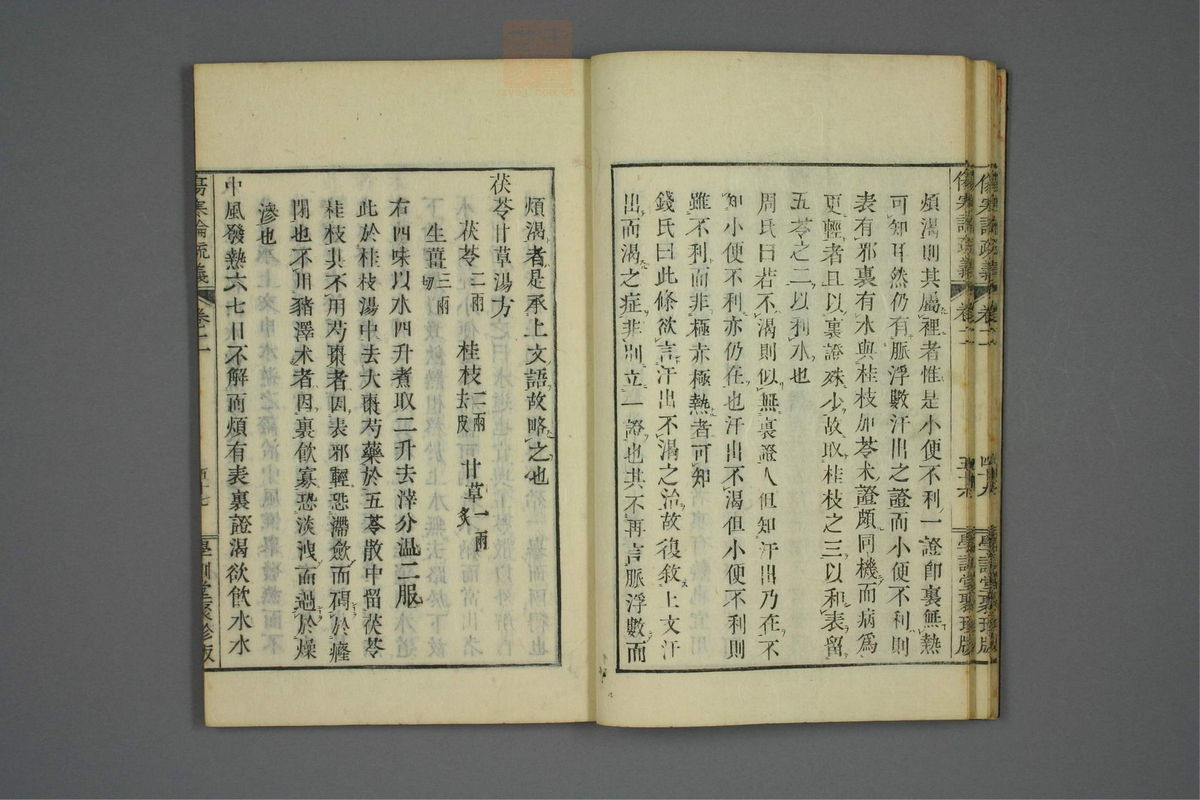 傷寒論疏義 卷二 四十九 學訓堂聚珍版
煩渴則其屬裡者惟是小便不利一證卽裏無熱
可知耳然仍有脈浮數汗出之證而小便不利則
表有邪裏有水與桂枝加苓朮證頗同機而病爲
更輕者且以裏證殊少故取桂枝之三以和表留
五苓之二以利水也
周氏曰若不渴則似無裏證人但知汗出乃在不
知小便不利亦仍在也汗出不渴但小便不利則
雖不利而非極赤極熱者可知
錢氏曰此條欲言汗出不渴之治故復敘上文汗
出而渴之症非別立一證也其不再言脈浮數而
煩渴者是承上文語故略之也
茯苓甘草湯方
茯苓二兩 桂枝二兩去皮 甘草一兩炙
生薑三兩切
右四味以水四升煮取二升去滓分溫三服
此於桂枝湯中去大棗芍藥於五苓散中留茯苓
桂枝其不用芍棗者因表邪輕恐滯斂而碍於癃
閉也不用豬澤朮者因裏飮寡恐淡洩而過於燥
滲也
中風發熱六七日不解而煩有表裏證渴欲飮水水
傷寒論疏義 卷二 學訓堂聚珍版